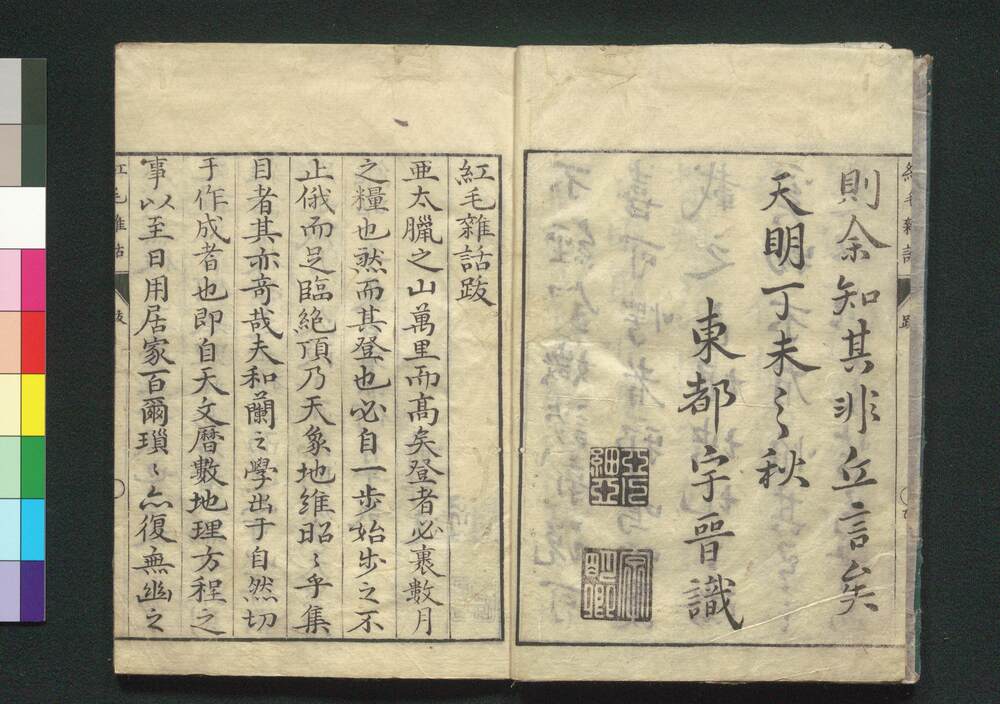 則余知其非丘言矣
天明丁未之秋
東都宇晋識
紅毛雜話跋
亜太臘之山萬里而髙矣登者必裹數月
之糧也然而其登也必自一歩始歩之不
止俄而足臨絶頂乃天象地維昭〻乎集
目者其亦竒哉夫和蘭之學出于自然切
于作成者也即自天文暦數地理方程之
事以至日用居家百爾瑣〻亦復無幽之
紅毛雜話